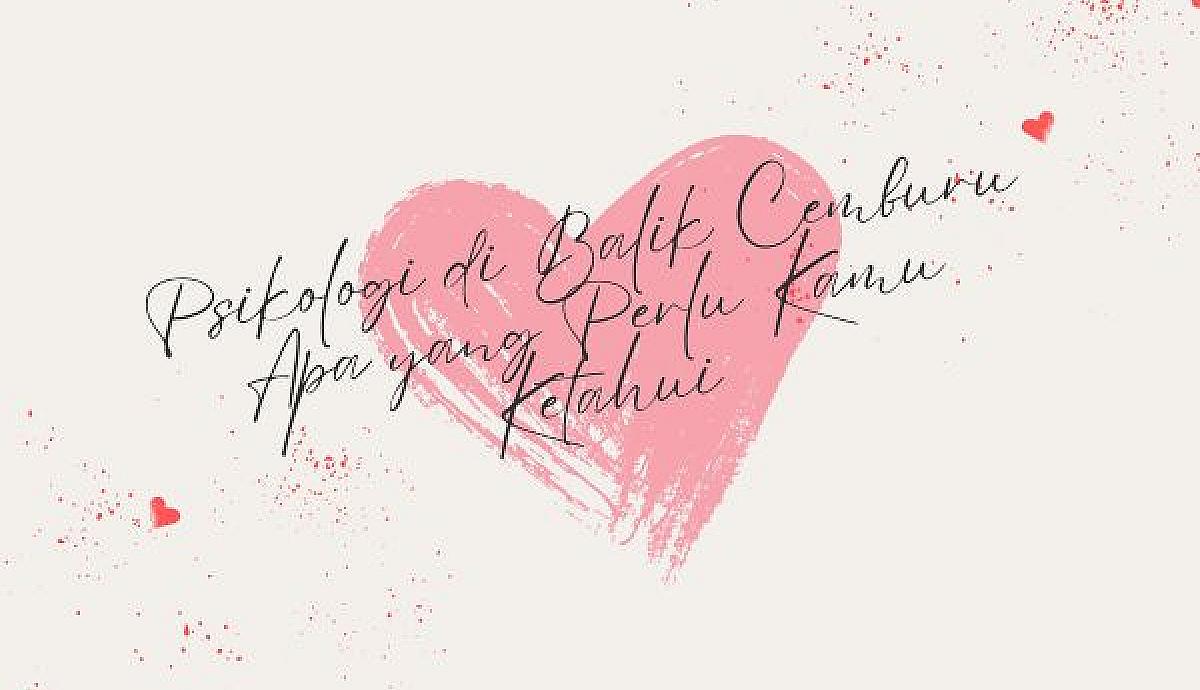 Psikologi di Balik Cemburu
Apa yang Perlu Kamu
Ketahui